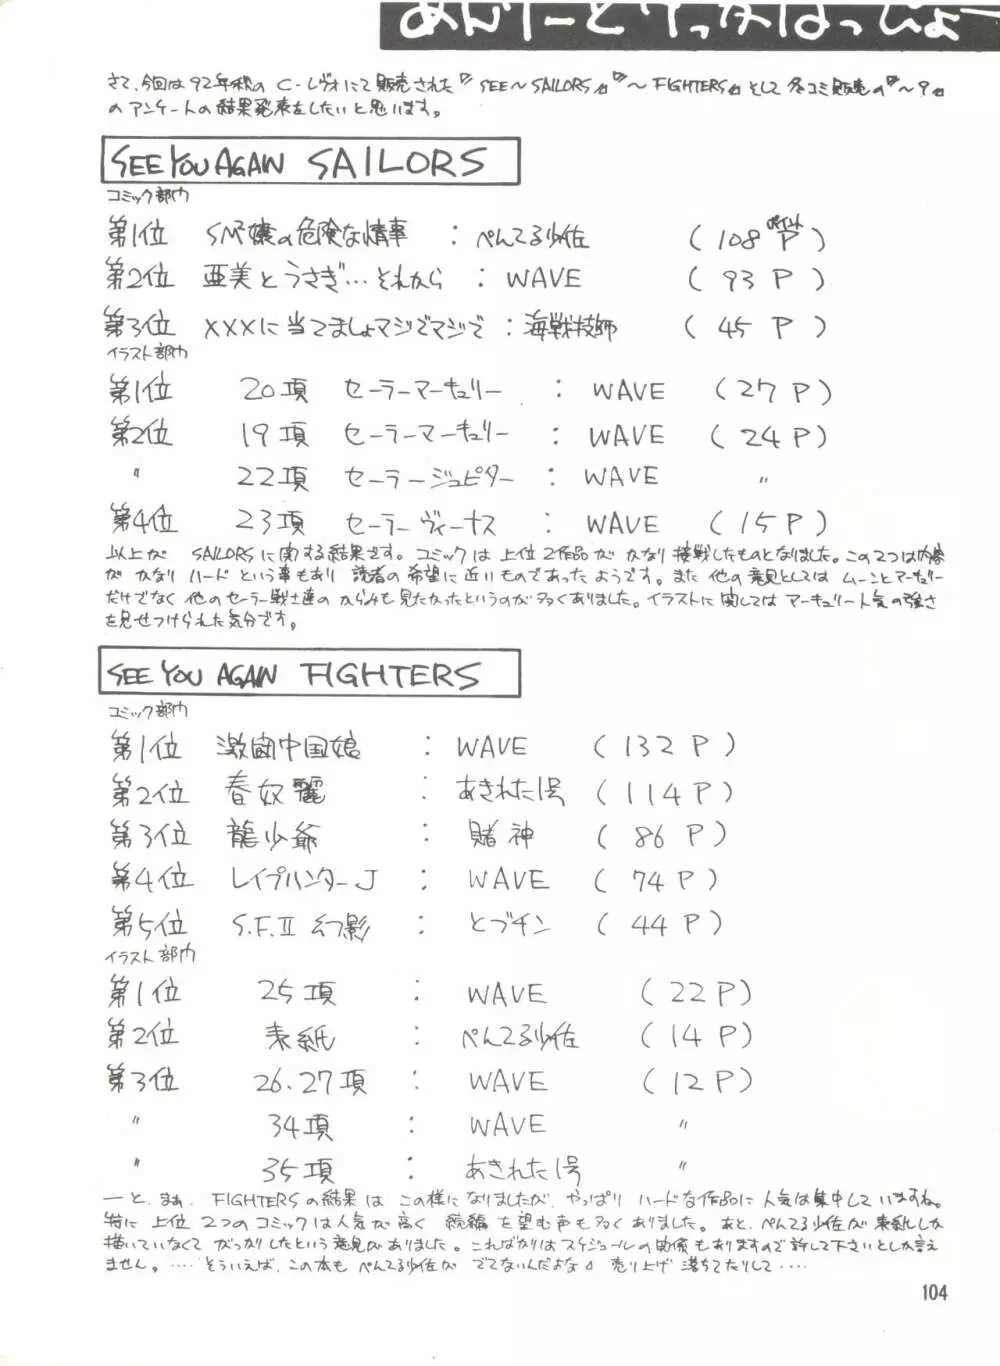 あんけーとけっかはっぴょー
さて、今回は92年秋のC・レヴォにて販売された『SEE~SAILORS』『~FIGHTERS』そして冬コミ販売の『~9』
のアンケートの結果発表をしたいと思います。
SEE YOU AGAIN SAILORS
コミック部門
第1位 SM嬢の危険な情事 : ぺんてる少佐 (108ポイントP)
第2位 亜美とうさぎ…それから : WAVE (93 P)
第3位 XXXに当てましょマジでマジで : 海戦技師 (45 P)
イラスト部門
第1位 20項 セーラーマーキュリー : WAVE (27 P)
第2位 19項 セーラーマーキュリー : WAVE (24 P)
〃 22項 セーラージュピター : WAVE 〃
第4位 23項 セーラーヴィーナス : WAVE (15 P)
以上が SAILORSに関する結果です。コミックは上位2作品がかなり接戦したものとなりました。この2つは内容
がかなりハードという事もあり 読者の希望に近いものであったようです。また他の意見としてはムーンとマーキュリー
だけでなく他のセーラー戦士達のからみも見たかったというのが多くありました。イラストに関してはマーキュリー人気の強さ
を見せつけられた気分です。
SEE YOU AGAIN FIGHTERS
コミック部門
第1位 激闘中国娘 : WAVE (132 P)
第2位 春奴麗 : あきれた1号 (114 P)
第3位 龍少爺 : 賭神 (86 P)
第4位 レイプハンターJ : WAVE (74 P)
第5位 S.F.II 幻影 : とブチン (44 P)
イラスト部門
第1位 25項 : WAVE (22 P)
第2位 表紙 : ぺんてる少佐 (14 P)
第3位 26.27項 : WAVE (12 P)
〃 34項 : WAVE 〃
〃 35項 : あきれた1号 〃
ーと、まぁ、FIGHTERSの結果はこの様になりましたが、やっぱりハードな作品に人気は集中していますね。
特に上位2つのコミックは人気が高く 続編を望む声も多くありました。あと、ぺんてる少佐が表紙しか
描いていなくてがっかりしたという意見がありました。こればかりはスケジュールの関係もありますので許して下さいとしか言え
ません。‥‥そういえば、この本もぺんてる少佐がでてないんだよな。売り上げ落ちてたりして‥‥
104